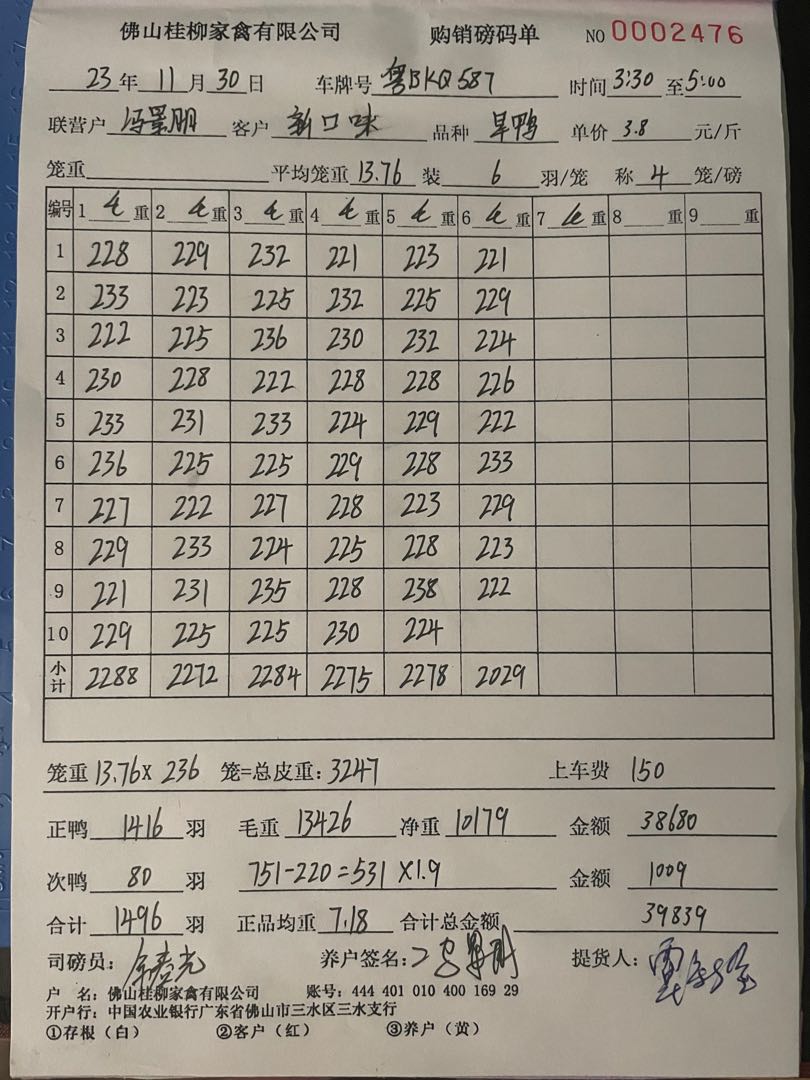 佛山桂柳家禽有限公司 购销磅码单 NO 0002476
23年11月30日 车牌号 粤BKQ587 时间 3:30 至 5:00
联营户 冯景明 客户 新口味 品种 旱鸭 单价 3.8 元/斤
笼重 平均笼重 13.76 装 6 羽/笼 称 4 笼/磅
编号 1 毛重 2 毛重 3 毛重 4 毛重 5 毛重 6 毛重 7 毛重 8 重 9 重
1 228 229 232 221 223 221
2 233 223 225 232 225 229
3 222 225 236 230 232 224
4 230 228 222 228 228 226
5 233 231 233 224 229 222
6 236 225 225 229 228 233
7 227 222 227 228 223 229
8 229 233 224 225 228 223
9 221 231 235 228 238 222
10 229 225 225 230 224
小计 2288 2272 2284 2275 2278 2029
笼重 13.76 x 236 笼=总皮重: 3247 上车费 150
正鸭 1416 羽 毛重 13426 净重 10179 金额 38680
次鸭 80 羽 751-220=531 X1.9 金额 1009
合计 1496 羽 正品均重 7.18 合计总金额 39839
司磅员: 养户签名: 提货人:
户 名: 佛山桂柳家禽有限公司 账号: 444 401 010 400 169 29
开户行: 中国农业银行广东省佛山市三水区三水支行
①存根(白) ②客户(红) ③养户(黄)